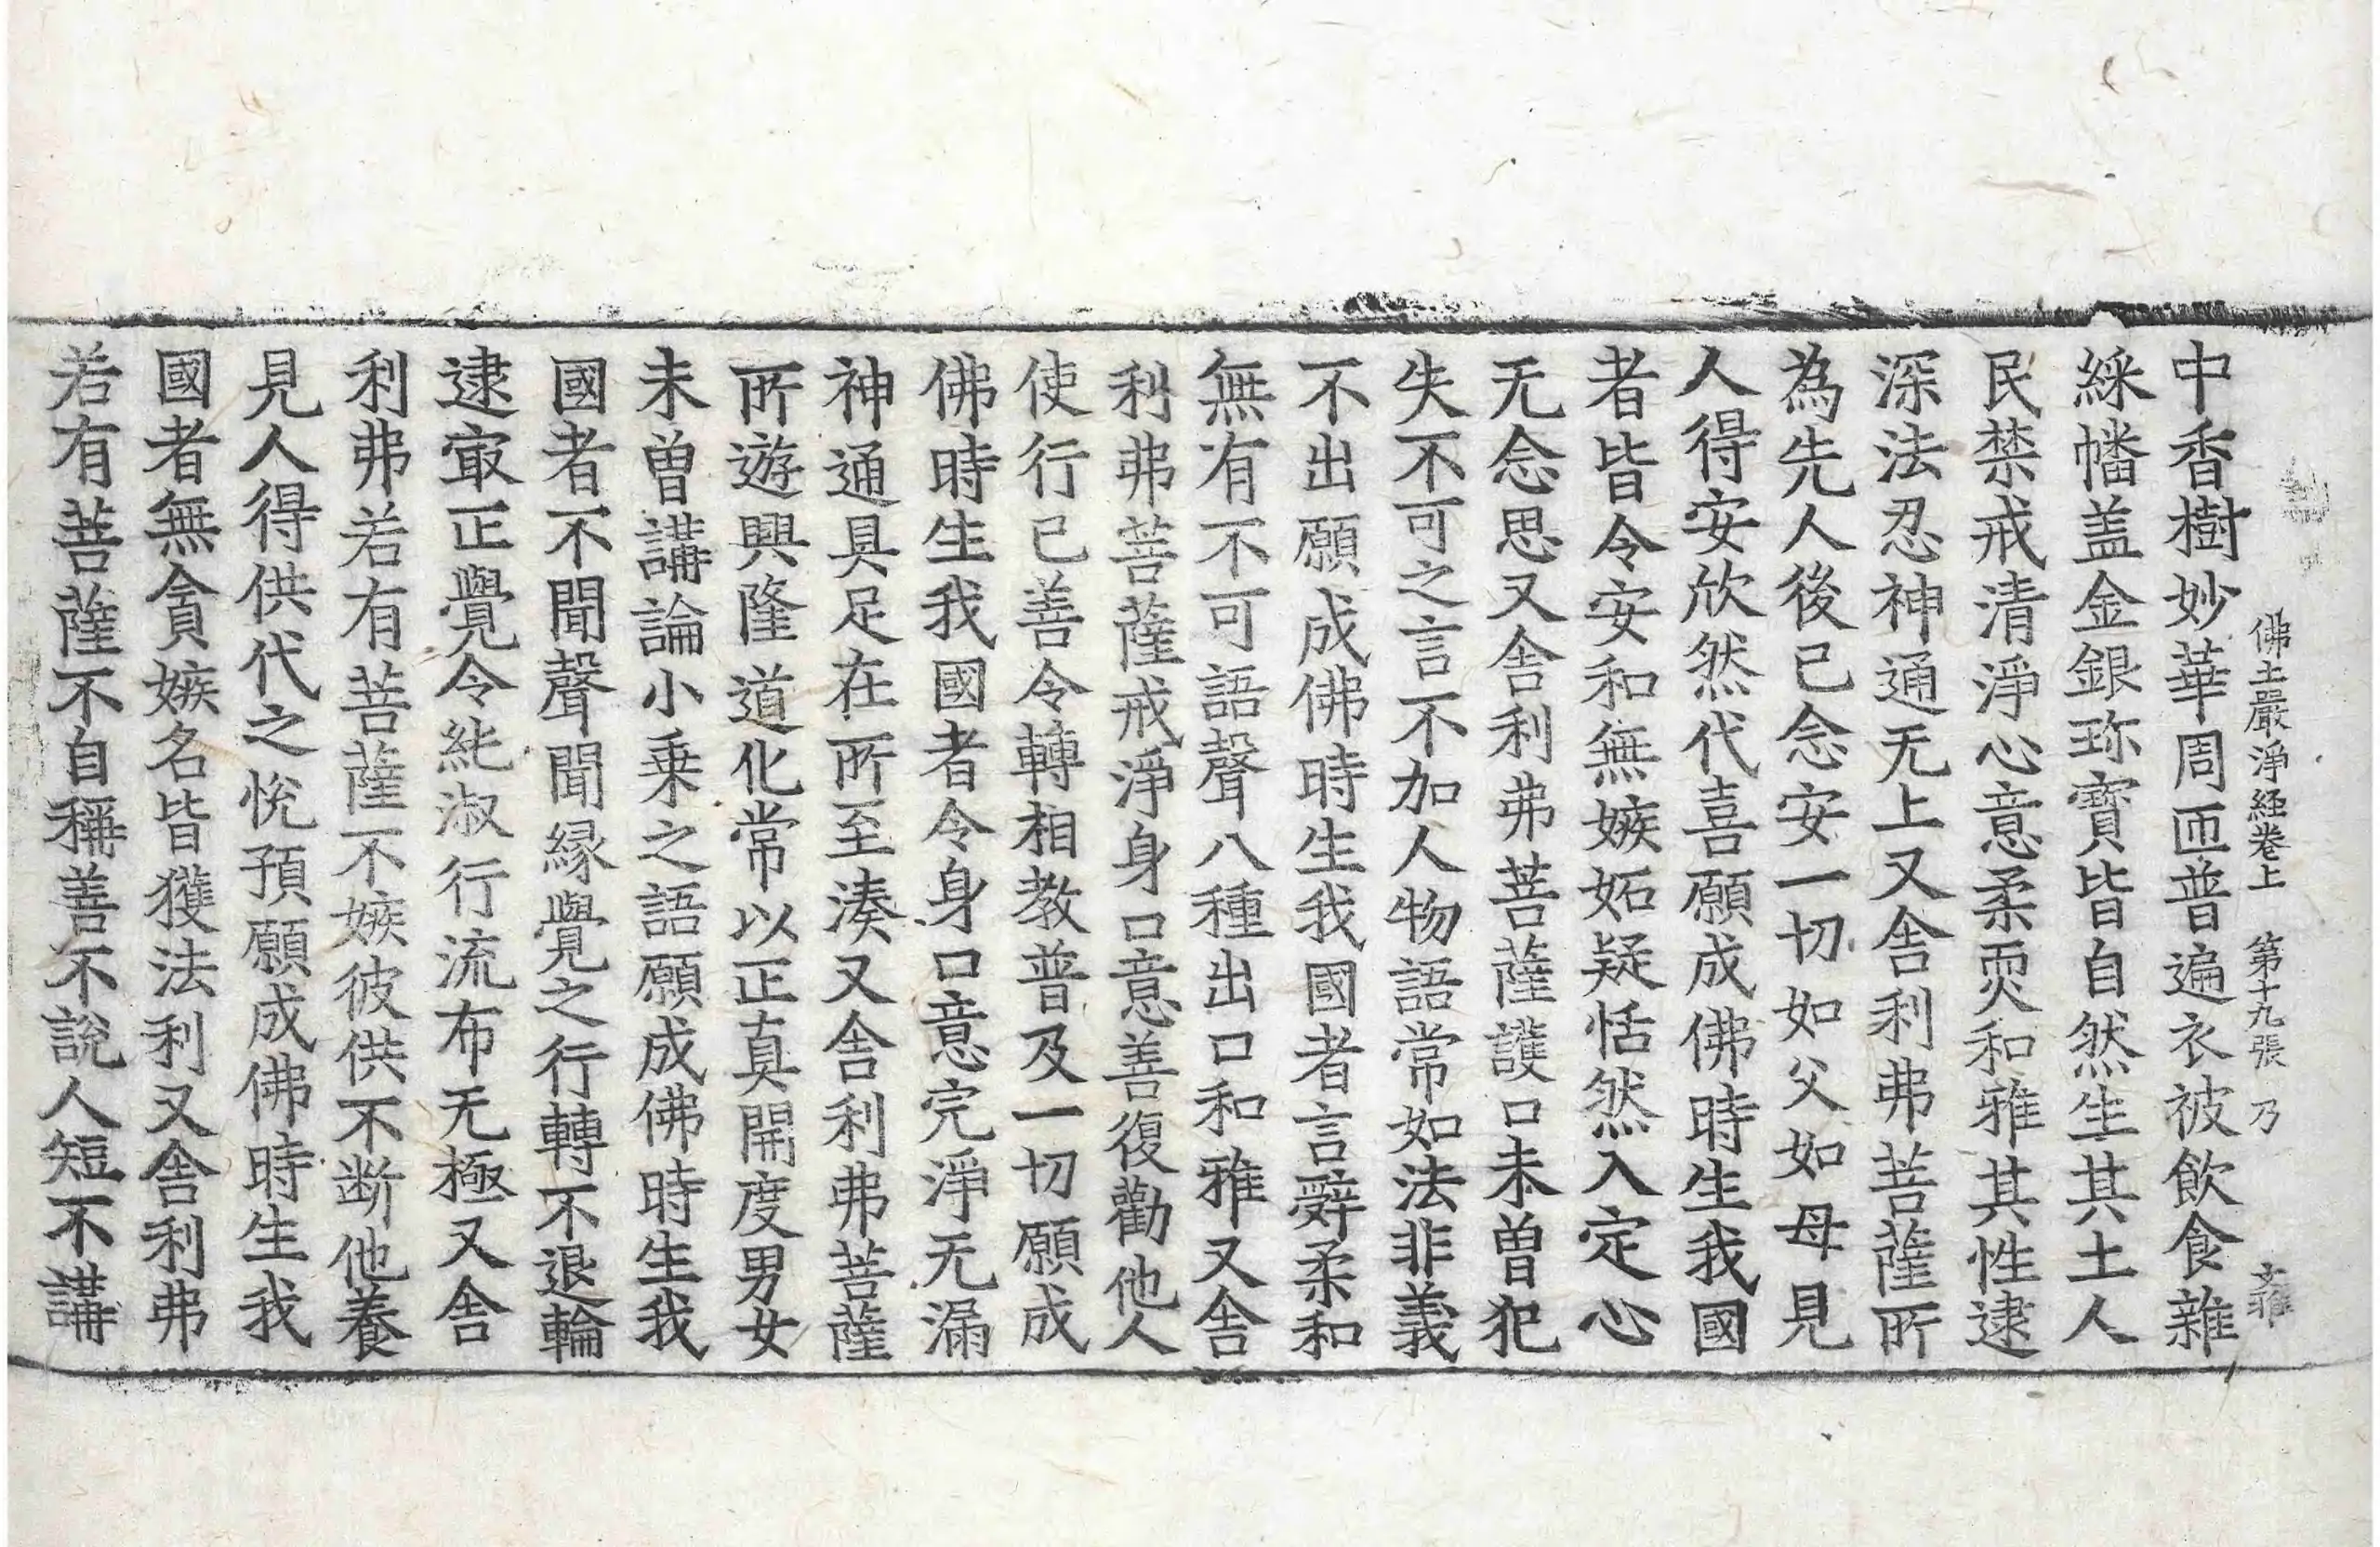 佛土嚴淨経卷上 第十九張 乃
中香樹妙華周匝普遍衣被飲食雜
綵幡盖金銀珎寶皆自然生其土人
民禁戒清淨心意柔耎和雅其性逮
深法忍神通无上又舍利弗菩薩所
為先人後己念安一切如父如母見
人得安欣然代喜願成佛時生我國
者皆令安和無嫉妬疑恬然入定心
无念思又舍利弗菩薩護口未曽犯
失不可之言不加人物語常如法非義
不出願成佛時生我國者言辭柔和
無有不可語聲八種出口和雅又舍
利弗菩薩戒淨身口意善復勸他人
使行已善令轉相教普及一切願成
佛時生我國者令身口意完淨无漏
神通具足在所至湊又舍利弗菩薩
所遊興隆道化常以正真開度男女
未曽講論小乗之語願成佛時生我
國者不聞聲聞縁覺之行轉不退輪
逮㝡正覺令純淑行流布无極又舍
利弗若有菩薩不嫉彼供不断他養
見人得供代之恱預願成佛時生我
國者無貪嫉名皆獲法利又舍利弗
若有菩薩不自稱善不說人短不講